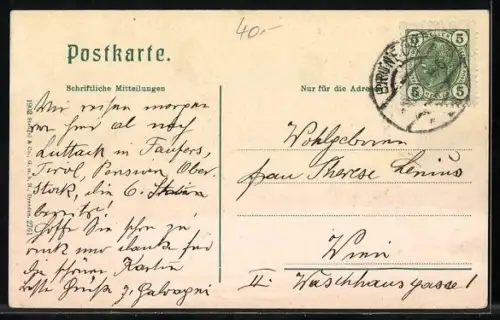 40.-
Postkarte.
Schriftliche Mitteilungen
Nur für die Adresse
5 5
5 5
BRUNECK
Wir reisen morgen
von hier ab nach
Luttach in Taufers,
Tirol, Pension Ober-
stock, die G.
besitzt!
Hoffe Sie schon zu-
rück und danke für
die schöne Karte
beste Grüße
Wohlgeboren
Frau Therese Lenius
Wien
II. Waschhausgasse 1